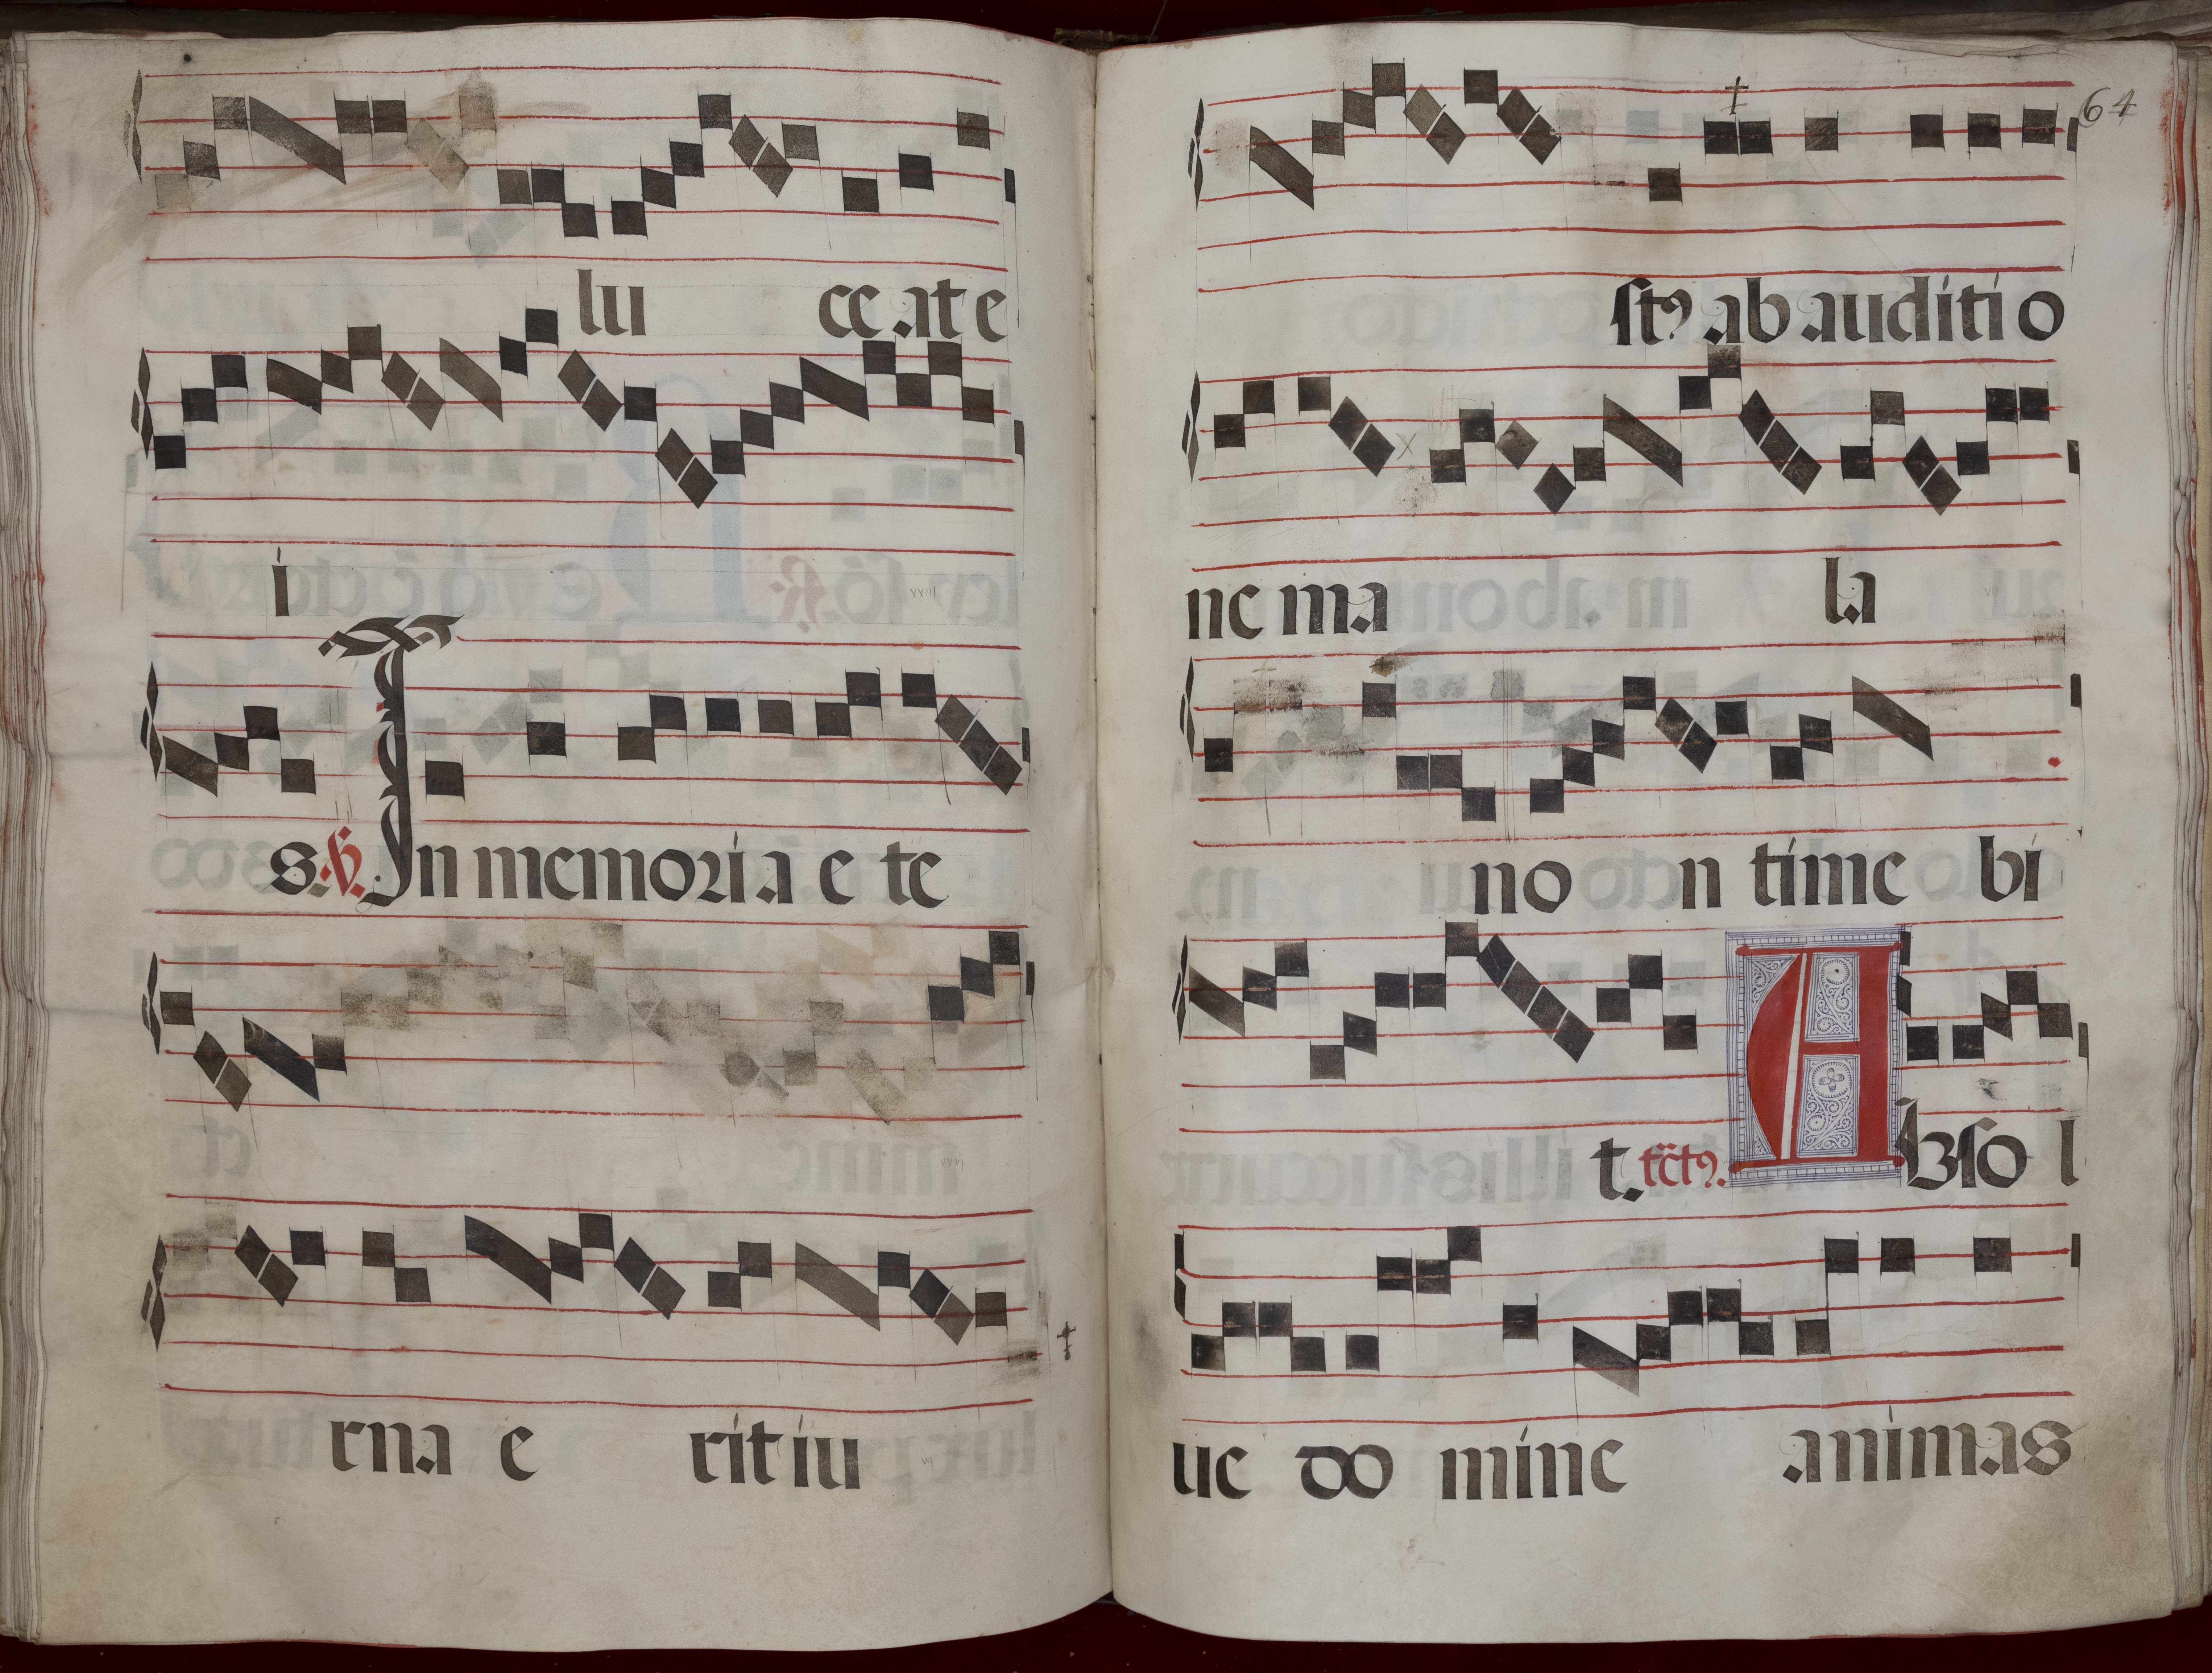 lu ce at e
i
s. ℣. In memoria e te
rna e rit iu
64
stꝰ ab auditio
ne ma la
no n time bi
t. tc̄tꝰ. Abso l
ue do mine animas